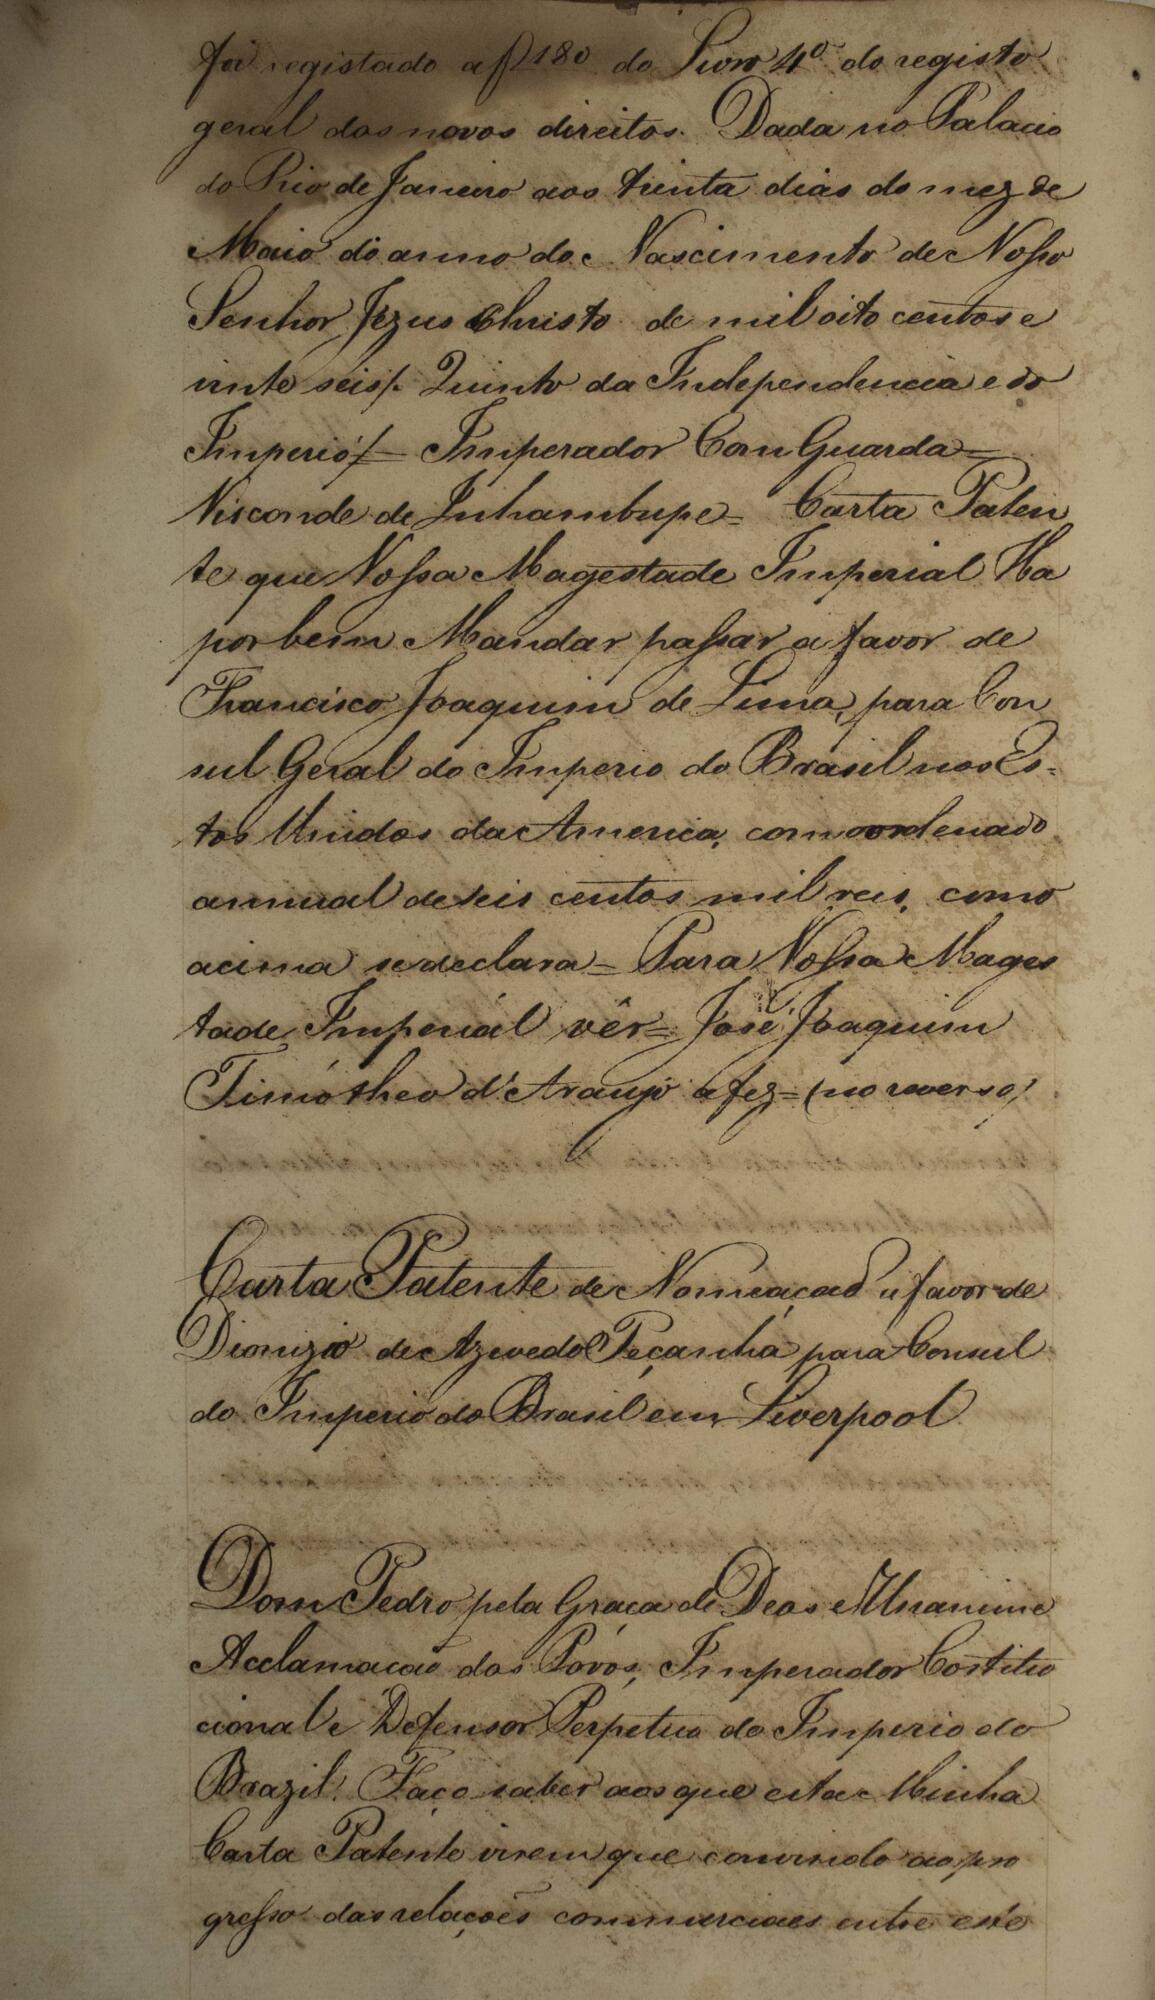 foi registado a f 180 do Livro 4º do registo
geral dos novos direitos. Dada no Palacio
do Rio de Janeiro aos trinta dias do mez de
Maio do anno do Nascimento de Nosso
Senhor Jezus Christo de mil oito centos e
vinte seis/. Quinto da Independencia e do
Imperio/= Imperador Com Guarda=
Visconde de Inhambupe= Carta Paten
te que Vossa Magestade Imperial Ha
por bem Mandar passar a favor de
Francisco Joaquim de Lima, para Con
sul Geral do Imperio do Brasil nos Es-
tos Unidos da America, com o ordenado
annual de seis centos mil reis, como
acima se declara= Para Vossa Mages
tade Imperiál vêr= José Joaquim
Timótheo d'Araujo a fez= (no reverso)
Carta Patente de Nomeaçaõ a favor de
Dionizio de Azevedo Peçanha para Consul
do Imperio do Brasil em Liverpool
Dom Pedro pela Graça de Deos e Unanime
Acclamacaõ dos Póvos, Imperador Costitu
cional e Defensor Perpetuo do Imperio do
Brazil. Faço saber aos que esta Minha
Carta Patente virem que convindo ao pro
gresso das relaçoẽs commerciaes entre este